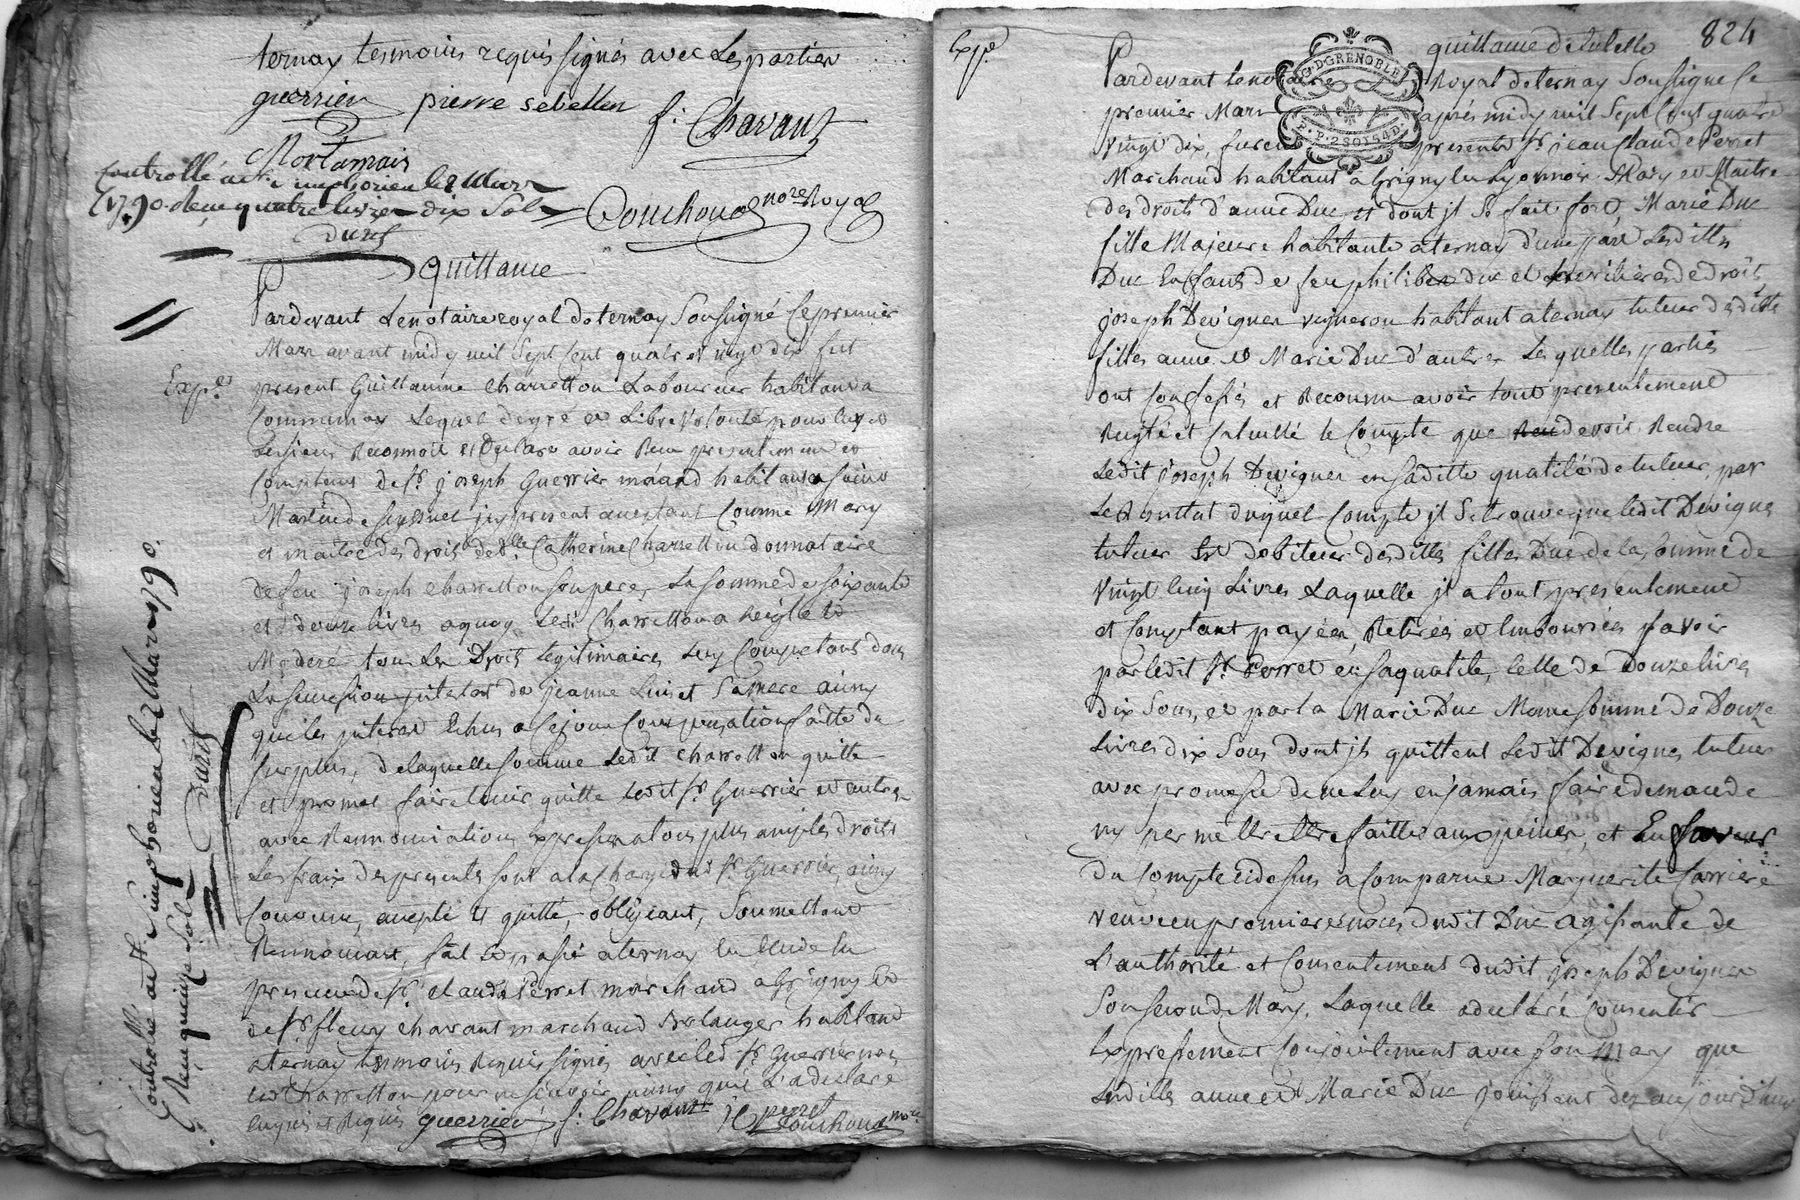 ternay tesmoins requis signés avec les parties
guerrier pierre sebellin f: Chavant
Mortamais
Controllé à St simphorien le 2 Mars
1790 reçu quatre livres dix sols
Durif
Couchoud nore Royal
quittance
Pardevant Le notaire royal de ternay Soussigné Ce premier
Mars avant midy mil Sept Cent quatre vingt dix fut
Expée
present Guillaume Charretton Laboureur habitant a
Communay Lequel de gré et Libre volonté pour luy et
les siens Reconnoit et Declare avoir Reçu presentement et
Comptant de Sr joseph Guerrier marand habitant a
jcy present acceptant Comme Mary
et maitre des droits de dlle Catherine Charretton donnataire
de feu joseph Charretton son pere, La somme de soixante
et douze livres a quoy Ledit Charretton a reiglé et
Moderé tous Les Droits Legitimaires Luy Competans dans
La succession de jeanne sa mere ainsy
que les interets Echus a ce jour Compensation faitte du
surplus, de laquelle somme Ledit Charretton quitte
et promet faire tenir quitte Ledit Sr Guerrier et autres
avec Rennonciation expresse a tous plus amples droits
Les fraix des presentes sont a la Charge dudit Sr Guerrier, ainsy
Convenu, accepté et quitté, obligeant, Soumettant
Rennonçant, fait et passé a ternay en Etude en
presence de Sr Claude Perret marchand a Grigny et
de Sr fleury Chavant marchand Bolanger habitant
a ternay tesmoins Requis signés avec led Sr Guerrier non
led Charretton pour ne sçavoir ainsy qu'il L'a declaré
enquis et Requis guerrier f: Chavant JC perret
Couchoud nore
Controllé à St Simphorien le 2 Mars 1790.
Reçu quinze Sols
Durif
824
Expée
quittance de tutelle
G. D GRENOBLE
F. P. 2 SOLS 4 D.
Pardevant Le notaire Royal de ternay Soussigné Ce
premier Mars après midy mil Sept Cent quatre
vingt dix, furent presents Sr jean Claude Perret
Marchand habitant a Grigny en Lyonnois Mary et Maitre
des droits d'anne Duc et dont jl Se fait fort, Marie Duc
fille Majeure habitante a ternay d'une part Lesdittes
Duc Enfants de feu philibert duc et heritieres de droit
joseph Devigne vigneron habitant a ternay tuteur desdittes
filles anne et Marie Duc d'autre Lesquelles parties
ont Confessés et Reconnu avoir tout presentement
Reiglé et Calculé le Compte que devoit Rendre
Ledit joseph Devigne en saditte qualité de tuteur, par
Le Resultat duquel Compte jl Se trouve que Ledit Devigne
tuteur Est debiteur desdittes filles Duc de la Somme de
vingt Cinq Livres Laquelle jl a tout presentement
et Comptant payée, Retirée et Emboursée savoir
par ledit Sr Perret en sa qualité, Celle de Douze livres
dix Sous, et par la Marie Duc Meme somme de Douze
Livres dix Sous dont jls quittent Ledit Devigne, tuteur
avec promesse de ne Luy en jamais faire demande
ny permettre Etre faitte aux peines, et En faveur
du Compte cidessus a Comparue Marguerite Carriere
veuve en premieres noces dudit Duc agissante de
L'authorité et Consentement dudit joseph Devigne
Son Second Mary, Laquelle a declaré Consentir
Expressement Conjointement avec son Mary que
Lesdittes anne et Marie Duc jouissent dez aujourd'huy